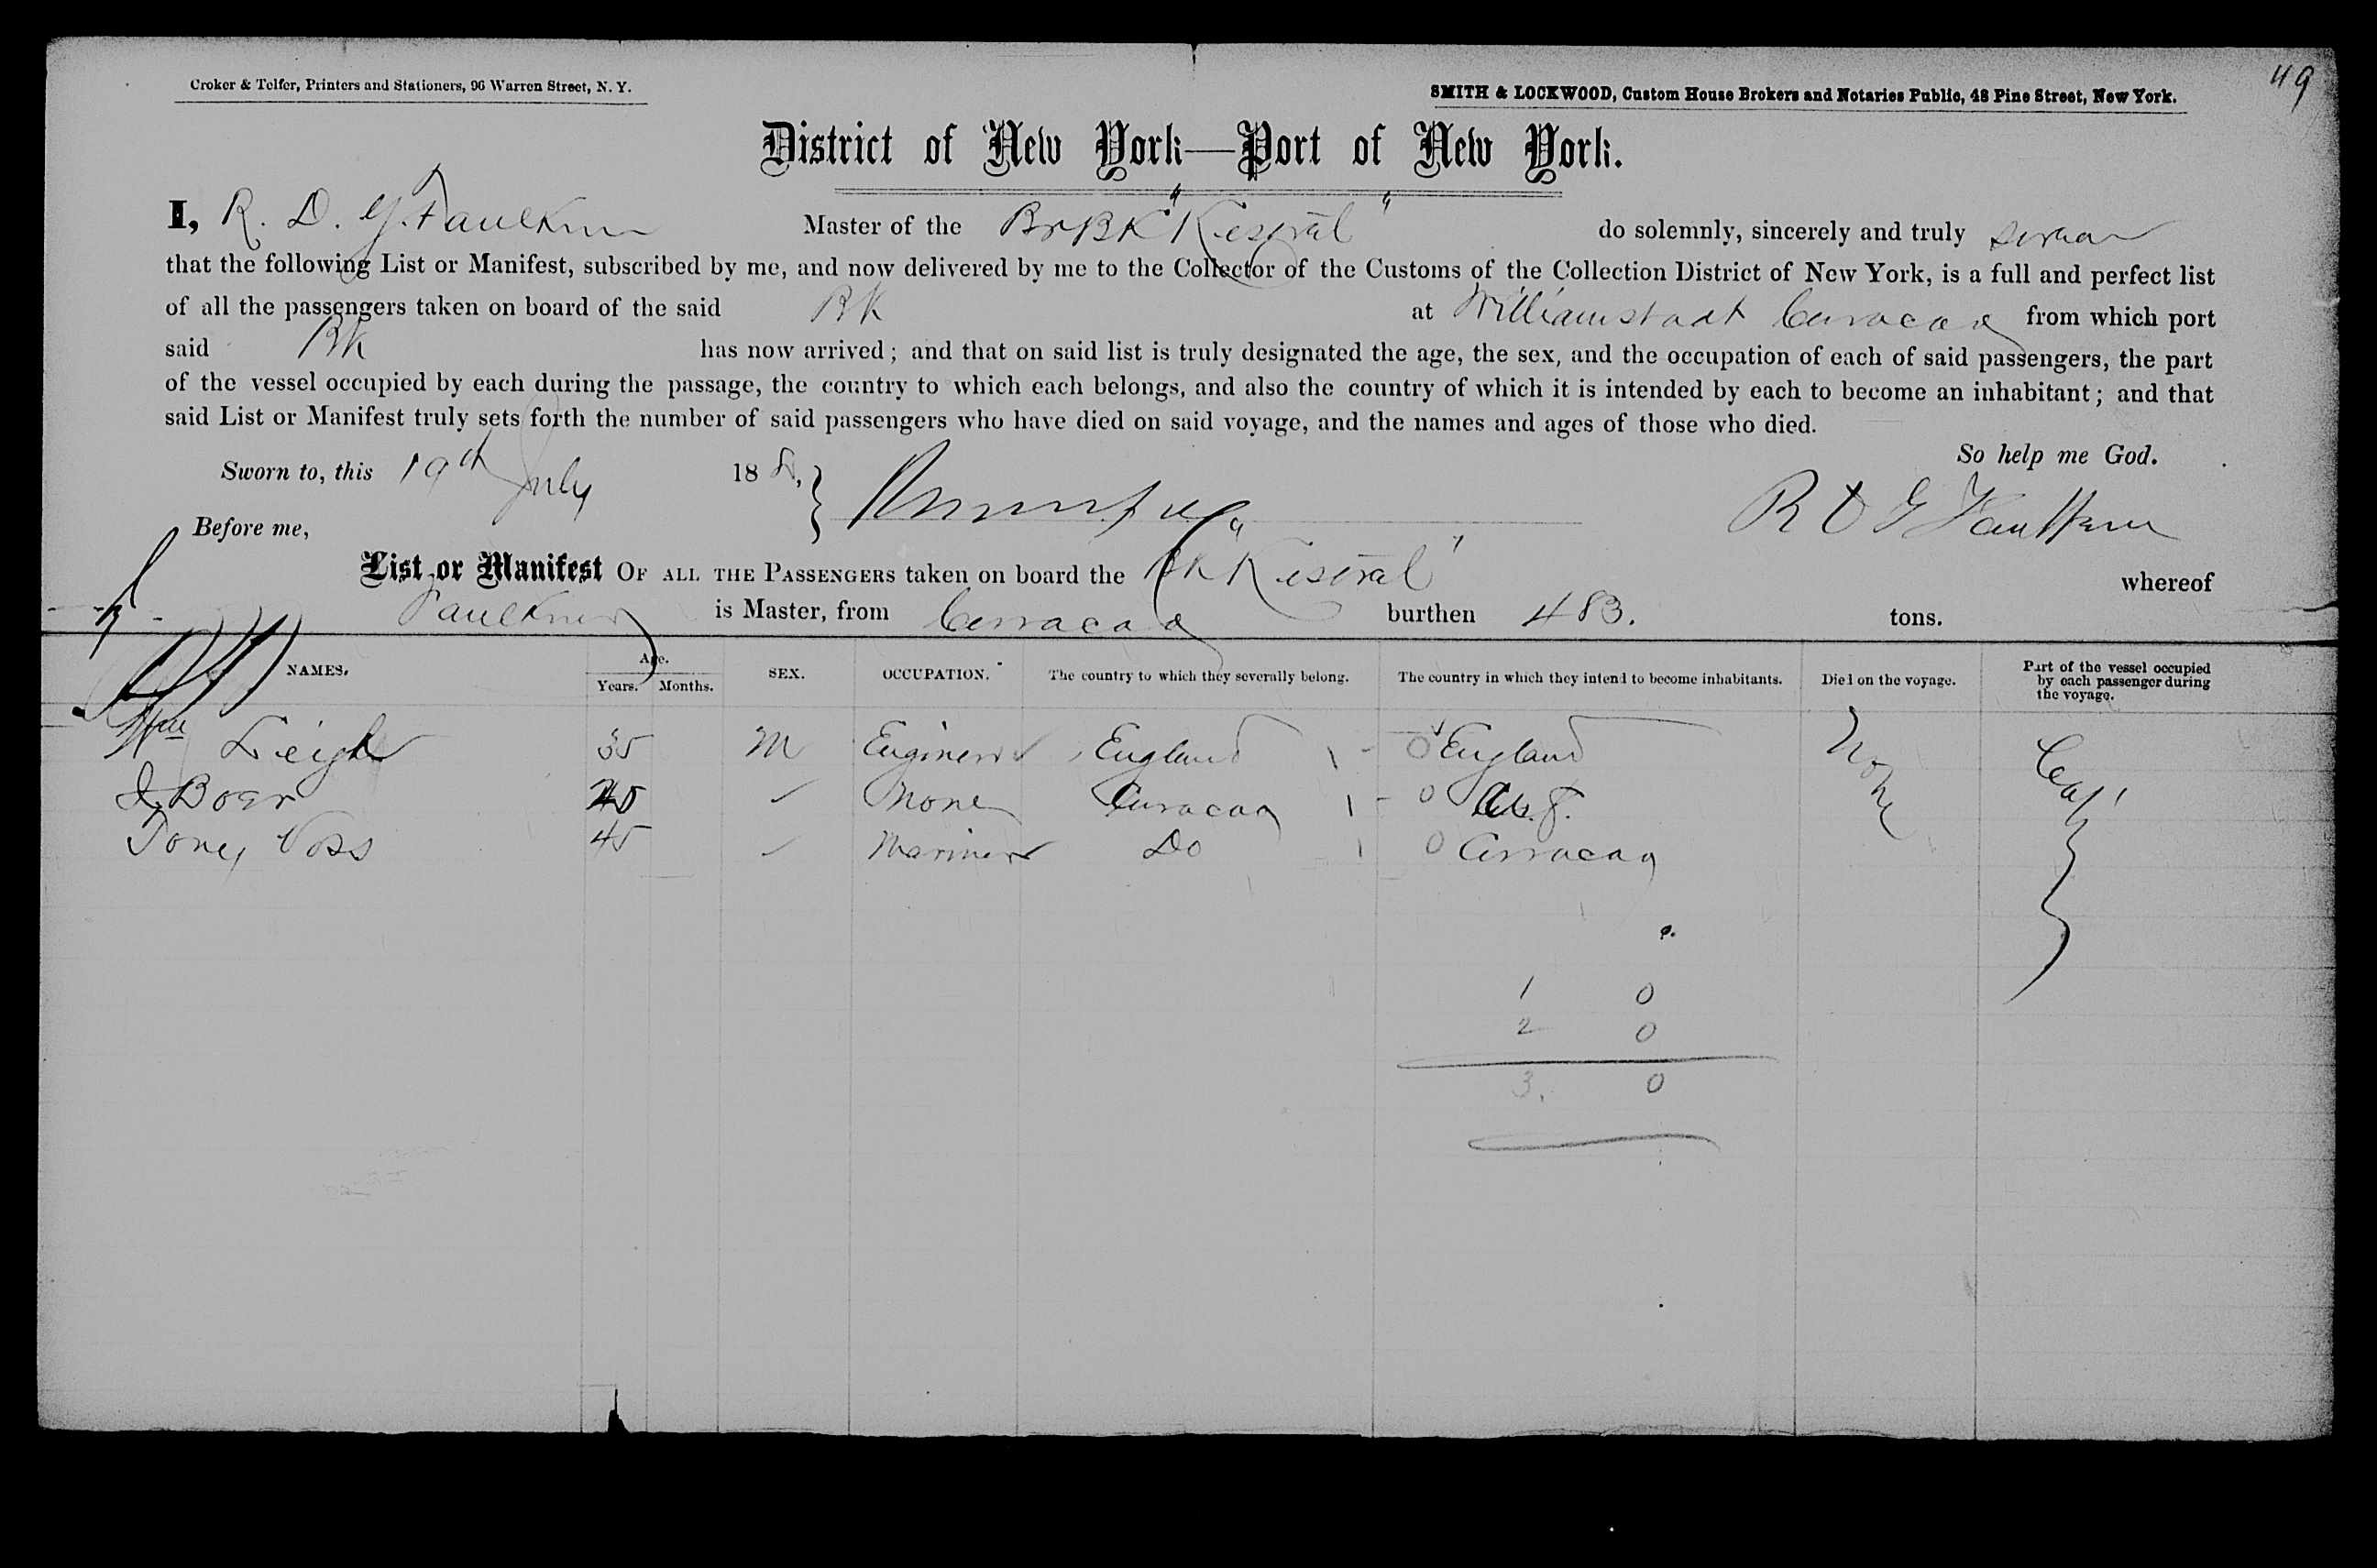 49
Croker & Telfer, Printers and Stationers, 96 Warren Street, N. Y.
SMITH & LOCKWOOD, Custom House Brokers and Notaries Public, 48 Pine Street, New York.
District of New York—Port of New York.
I, R. D. G. Faulkner Master of the Br Bk "Kestral" do solemnly, sincerely and truly swear
that the following List or Manifest, subscribed by me, and now delivered by me to the Collector of the Customs of the Collection District of New York, is a full and perfect list
of all the passengers taken on board of the said Bk at Williamstadt Curacao from which port
said Bk has now arrived; and that on said list is truly designated the age, the sex, and the occupation of each of said passengers, the part
of the vessel occupied by each during the passage, the country to which each belongs, and also the country of which it is intended by each to become an inhabitant; and that
said List or Manifest truly sets forth the number of said passengers who have died on said voyage, and the names and ages of those who died.
So help me God.
Sworn to, this 19th July 18
R D G Faulkner
Before me,
List or Manifest OF ALL THE PASSENGERS taken on board the Bk "Kestral" whereof
Faulkner is Master, from Curacao burthen 483. tons.
NAMES. Age. Years. Months. SEX. OCCUPATION. The country to which they severally belong. The country in which they intend to become inhabitants. Died on the voyage. Part of the vessel occupied by each passenger during the voyage.
Wm Leigh 35 M Engineer England England None
Boer None Curacao
Toney Voss 45 Mariner Do Curacao
1 0
2 0
3. 0